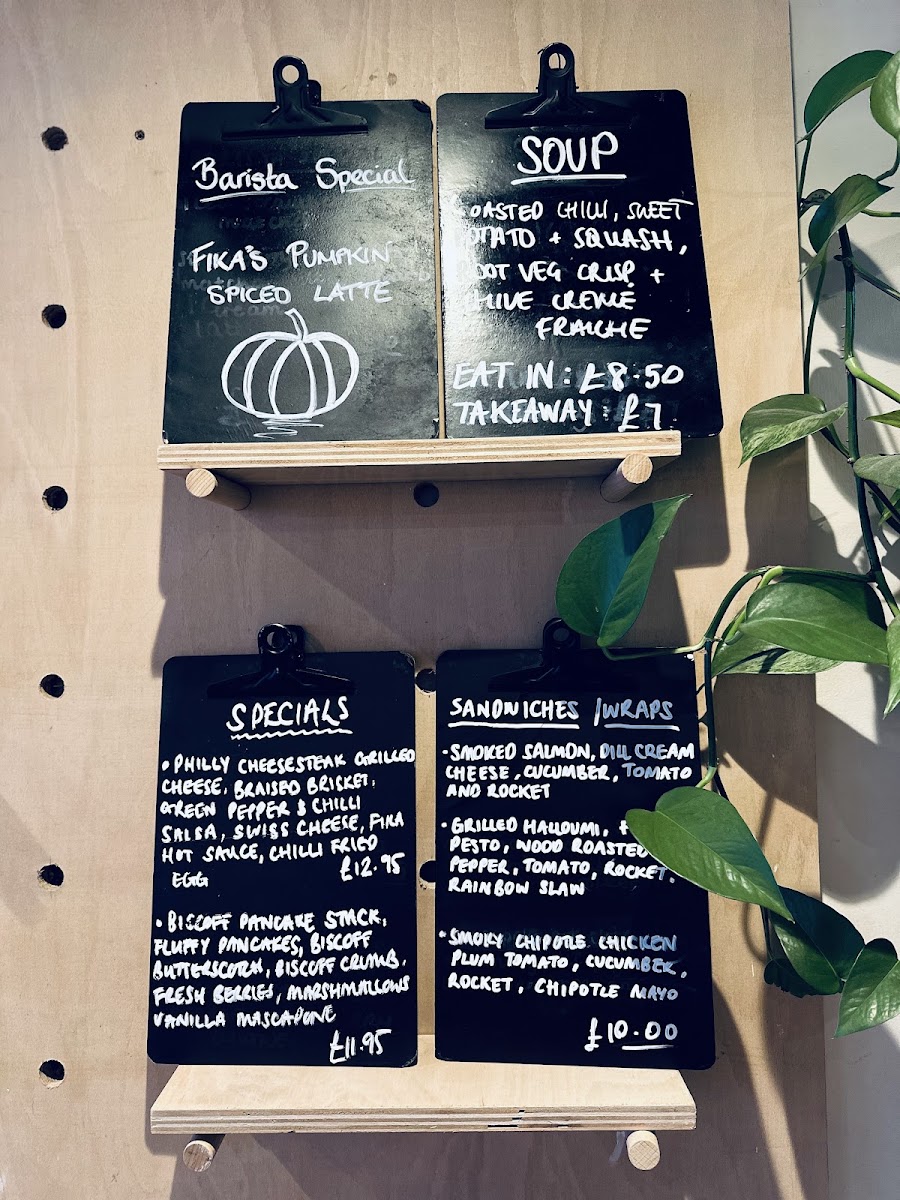 Barista Special
FIKA'S PUMPKIN
SPICED LATTE
SOUP
ROASTED CHILLI, SWEET
POTATO + SQUASH,
ROOT VEG CRISP +
CHIVE CREME
FRAICHE
EAT IN: £8.50
TAKEAWAY: £7
SPECIALS
• PHILLY CHEESESTEAK GRILLED
CHEESE, BRAISED BRISKET,
GREEN PEPPER & CHILLI
SALSA, SWISS CHEESE, FIKA
HOT SAUCE, CHILLI FRIED
EGG £12.95
• BISCOFF PANCAKE STACK,
FLUFFY PANCAKES, BISCOFF
BUTTERSCOTCH, BISCOFF CRUMB,
FRESH BERRIES, MARSHMALLOWS
VANILLA MASCAPONE
£11.95
SANDWICHES / WRAPS
• SMOKED SALMON, DILL CREAM
CHEESE, CUCUMBER, TOMATO
AND ROCKET
• GRILLED HALLOUMI,
PESTO, WOOD ROASTED
PEPPER, TOMATO, ROCKET,
RAINBOW SLAW
• SMOKY CHIPOTLE CHICKEN
PLUM TOMATO, CUCUMBER,
ROCKET, CHIPOTLE MAYO
£10.00